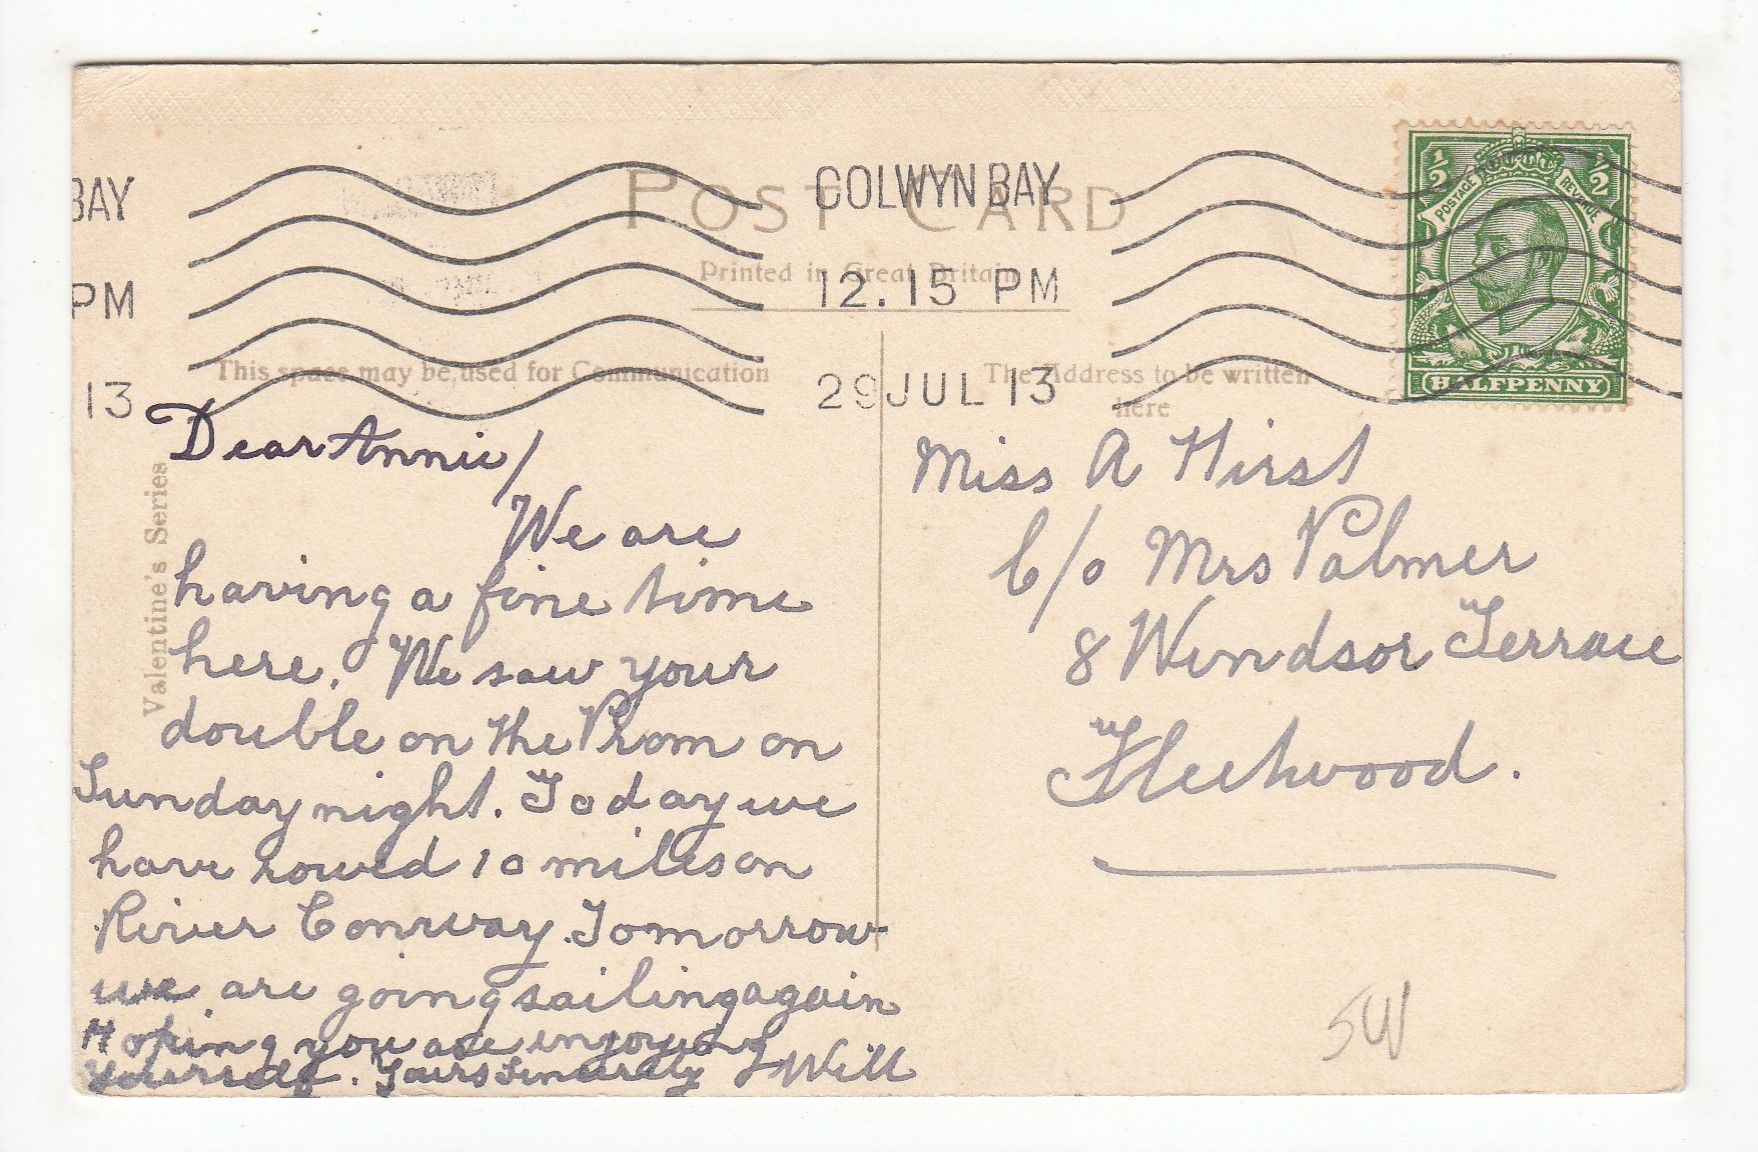 BAY
PM
13
COLWYN BAY
12.15 PM
29 JUL 13
POST CARD
Printed in Great Britain
This space may be used for Communication
The Address to be written
here
½ ½
POSTAGE REVENUE
HALFPENNY
Valentine's Series
Dear Annie/
We are
having a fine time
here. We saw your
double on the Prom on
Sunday night. Today we
have rowed 10 miles on
River Conway. Tomorrow
we are going sailing again
Hoping you are enjoying
yourself. Yours Sincerely Will
Miss A Hirst
C/o Mrs Palmer
8 Windsor Terrace
Fleetwood.